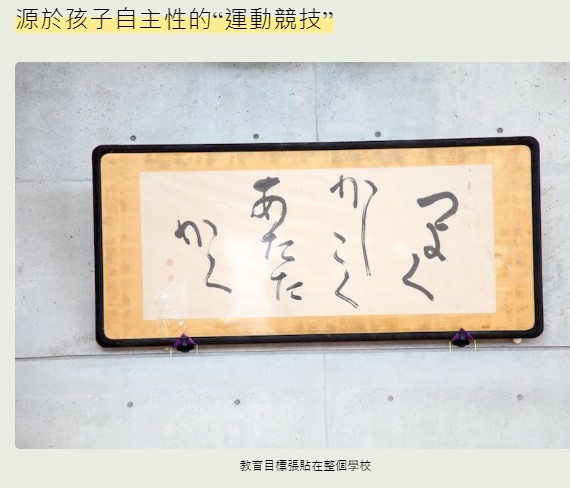 源於孩子自主性的“運動競技”
つよく
かしこく
あたた
かく
教育目標張貼在整個學校